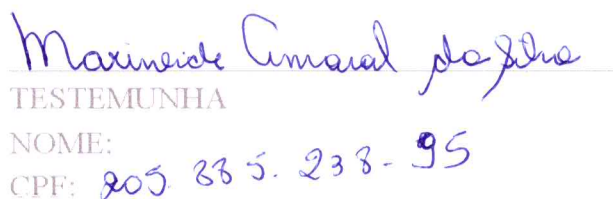 Marineide Amaral da Silva
TESTEMUNHA
NOME:
CPF: 205.885.238-95